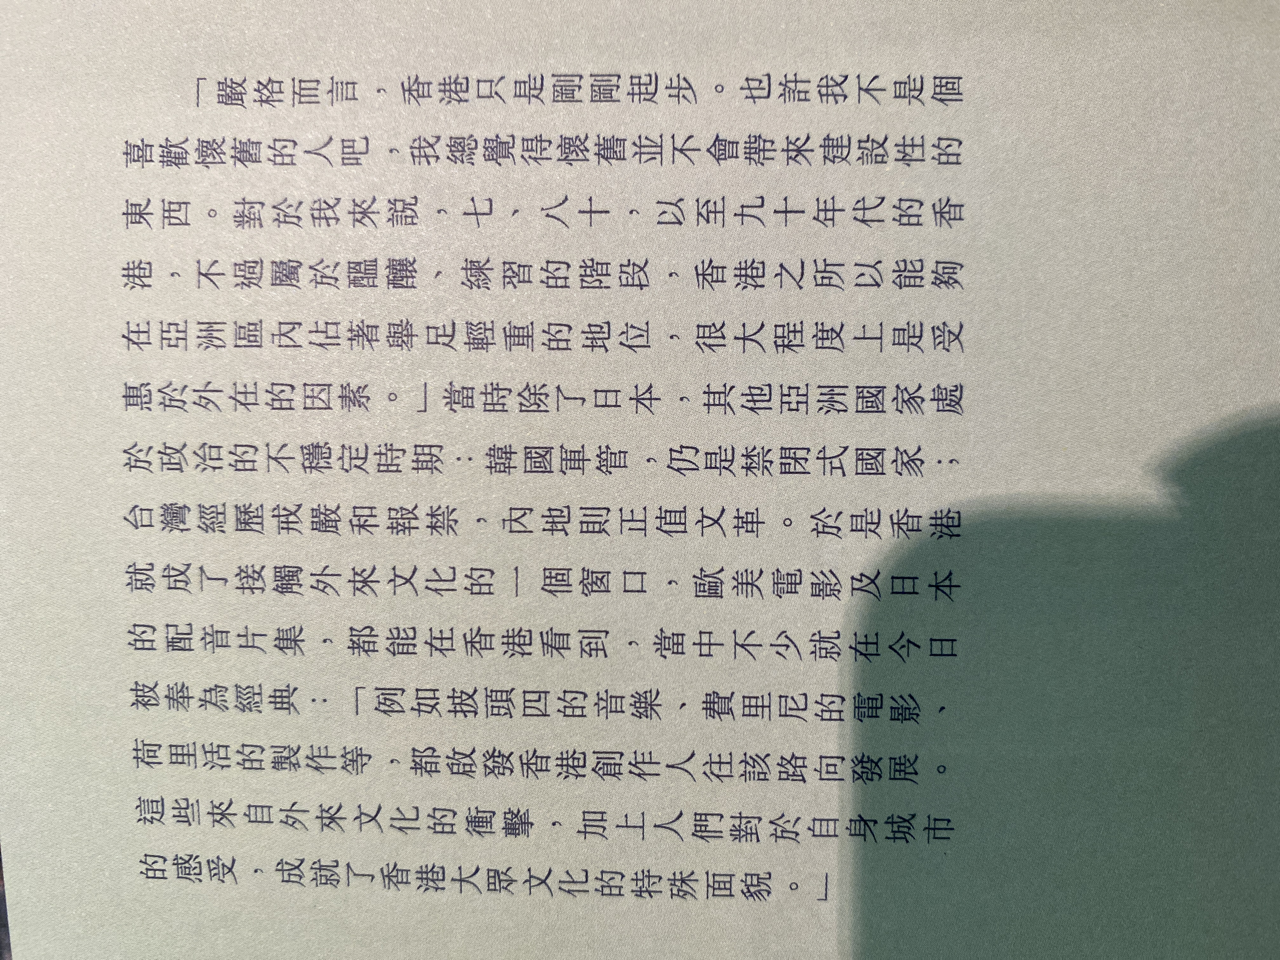 「嚴格而言，香港只是剛剛起步。也許我不是個
喜歡懷舊的人吧，我總覺得懷舊並不會帶來建設性的
東西。對於我來説，七、八十，以至九十年代的香
港，不過屬於醞釀、練習的階段，香港之所以能夠
在亞洲區內佔著舉足輕重的地位，很大程度上是受
惠於外在的因素。」當時除了日本，其他亞洲國家處
於政治的不穩定時期：韓國軍管，仍是禁閉式國家；
台灣經歷戒嚴和報禁，內地則正值文革。於是香港
就成了接觸外來文化的一個窗口，歐美電影及日本
的配音片集，都能在香港看到，當中不少就在今日
被奉為經典：「例如披頭四的音樂、費里尼的電影、
荷里活的製作等，都啟發香港創作人往該路向發展。
這些來自外來文化的衝擊，加上人們對於自身城市
的感受，成就了香港大眾文化的特殊面貌。」